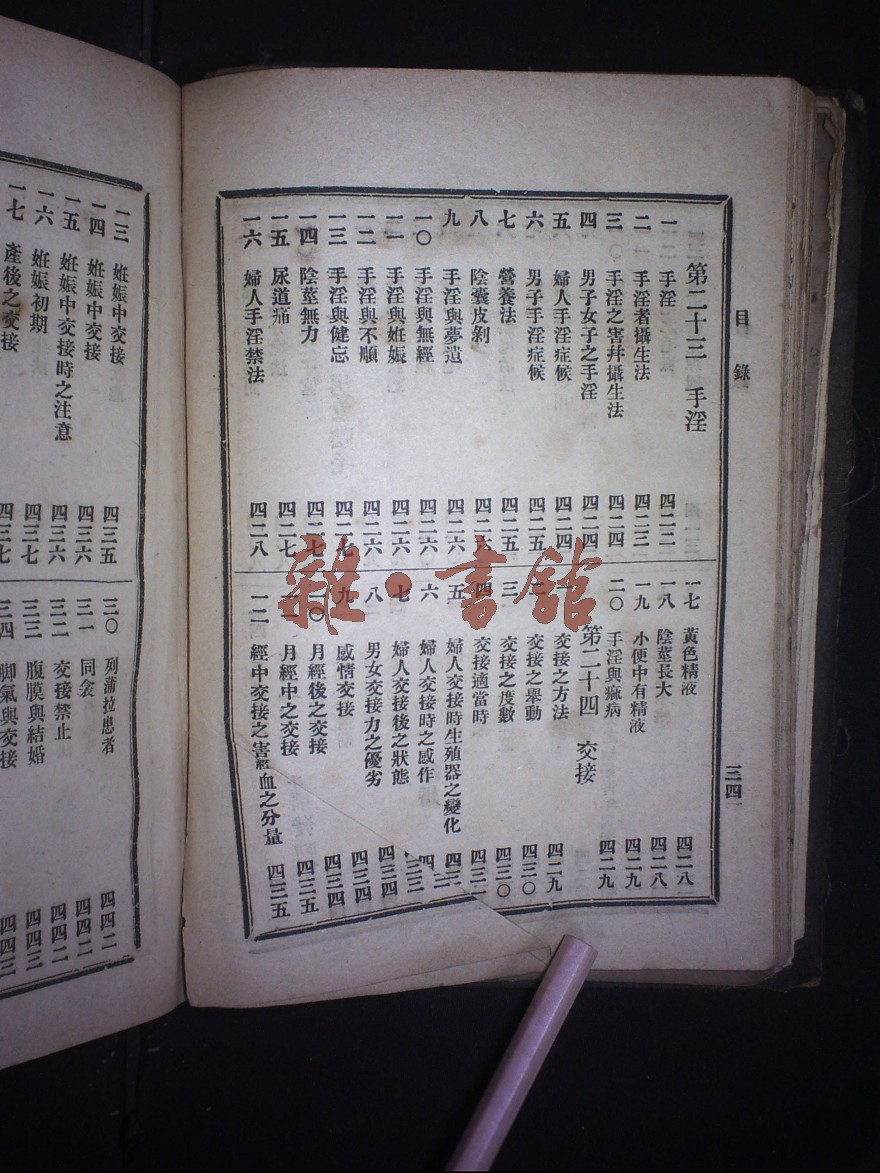 目錄
三四
第二十三 手淫
一 手淫 四二二
二 手淫者攝生法 四二三
三 手淫之害幷攝生法 四二四
四 男子女子之手淫 四二四
五 婦人手淫症候 四二四
六 男子手淫症候 四二五
七 營養法 四二五
八 陰囊皮剝 四二六
九 手淫與夢遺 四二六
一〇 手淫與無經 四二六
一一 手淫與妊娠 四二六
一二 手淫與不順 四二六
一三 手淫與健忘 四二七
一四 陰莖無力 四二七
一五 尿道痛 四二七
一六 婦人手淫禁法 四二八
一七 黃色精液 四二八
一八 陰莖長大 四二八
一九 小便中有精液 四二九
二〇 手淫與痲病 四二九
第二十四 交接
一 交接之方法 四二九
二 交接之舉動 四三〇
三 交接之度數 四三〇
四 交接適當時 四三一
五 婦人交接時生殖器之變化
六 婦人交接時之感作
七 婦人交接後之狀態
八 男女交接力之優劣 四三四
九 感情交接 四三四
一〇 月經後之交接 四三四
一一 月經中之交接 四三五
一二 經中交接之害經血之分量 四三五
一三 妊娠中交接 四三五
一四 妊娠中交接 四三六
一五 妊娠中交接時之注意 四三六
一六 妊娠初期 四三七
一七 產後之交接 四三七
三〇 列蒲拉患者 四四二
三一 同衾 四四二
三二 交接禁止 四四二
三三 腹膜與結婚 四四三
三四 脚氣與交接 四四三
雜·書館